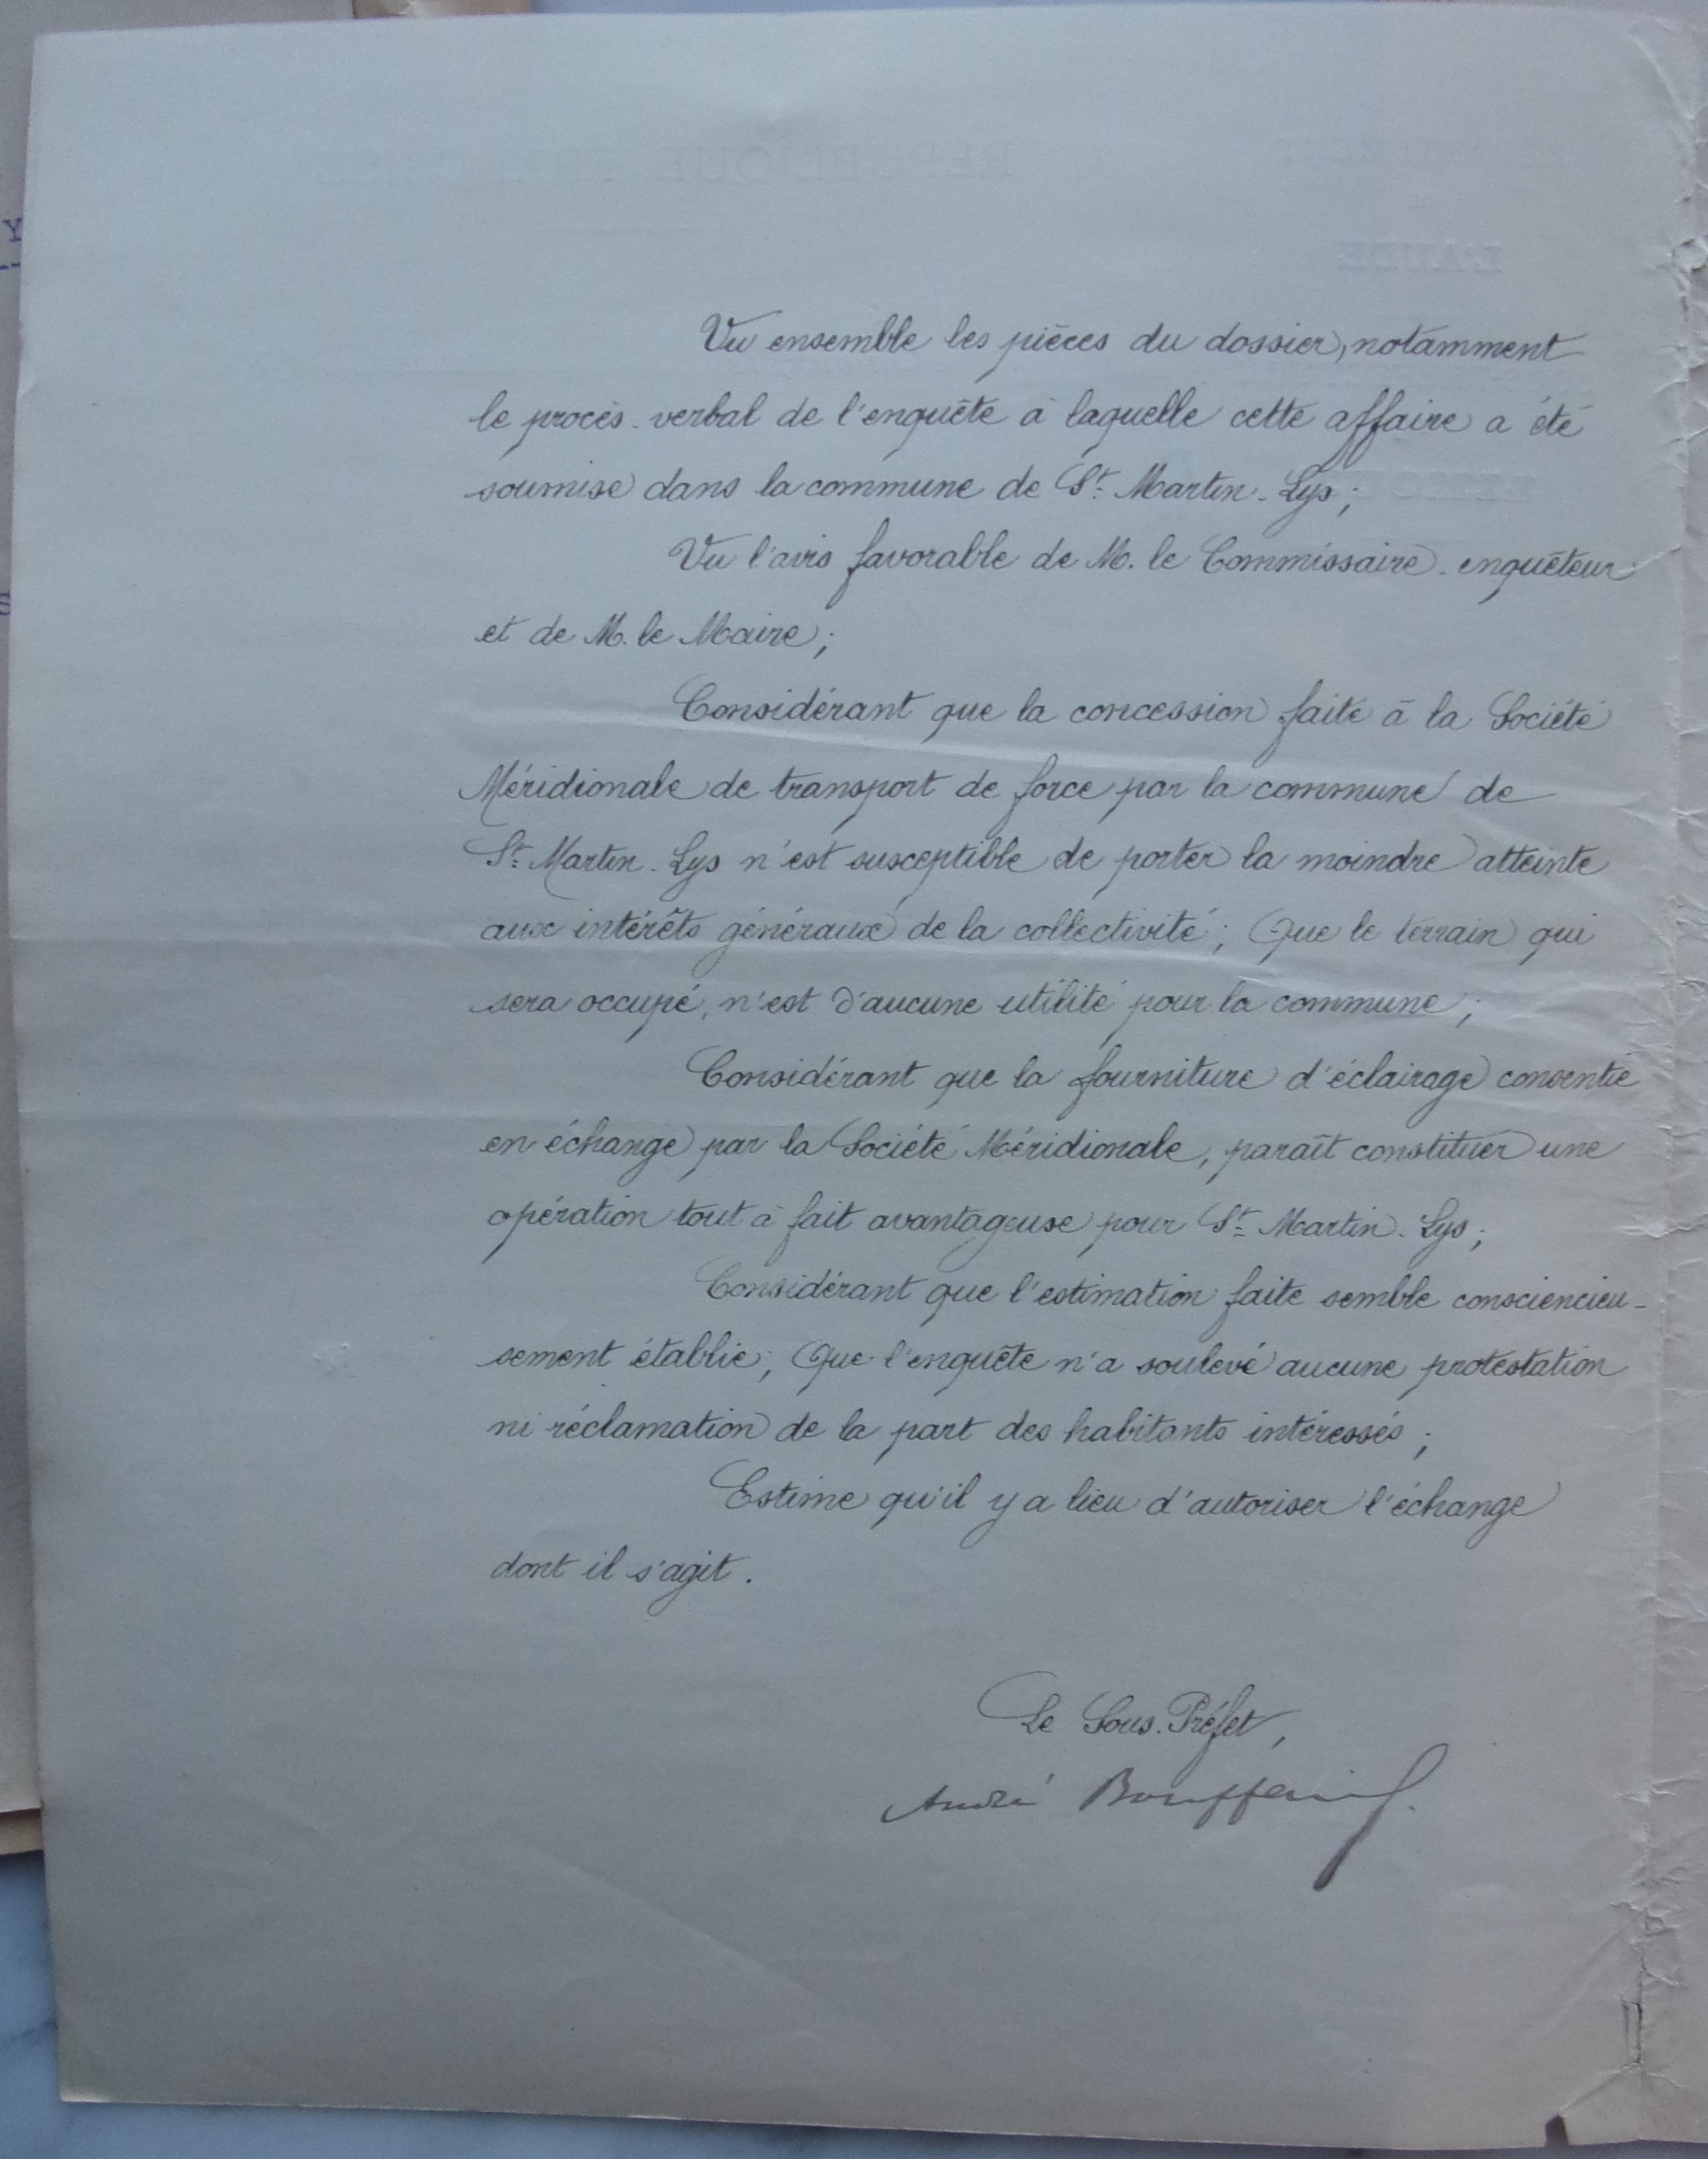 Vu ensemble les pièces du dossier, notamment
le procès-verbal de l'enquête à laquelle cette affaire a été
soumise dans la commune de St Martin-Lys;
Vu l'avis favorable de M. le Commissaire-enquêteur
et de M. le Maire;
Considérant que la concession faite à la Société
Méridionale de transport de force par la commune de
St Martin-Lys n'est susceptible de porter la moindre atteinte
aux intérêts généraux de la collectivité; Que le terrain qui
sera occupé, n'est d'aucune utilité pour la commune;
Considérant que la fourniture d'éclairage consentie
en échange par la Société Méridionale, paraît constituer une
opération tout à fait avantageuse pour St Martin-Lys;
Considérant que l'estimation faite semble consciencieu-
sement établie; Que l'enquête n'a soulevé aucune protestation
ni réclamation de la part des habitants intéressés;
Estime qu'il y a lieu d'autoriser l'échange
dont il s'agit.
Le Sous-Préfet,
André